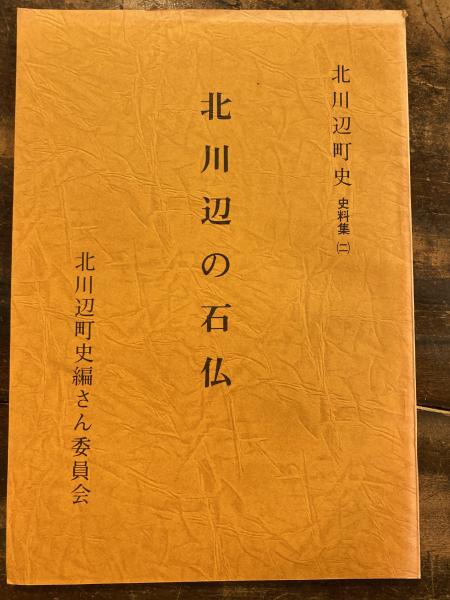 北川辺町史 史料集㈡
北川辺の石仏
北川辺町史編さん委員会